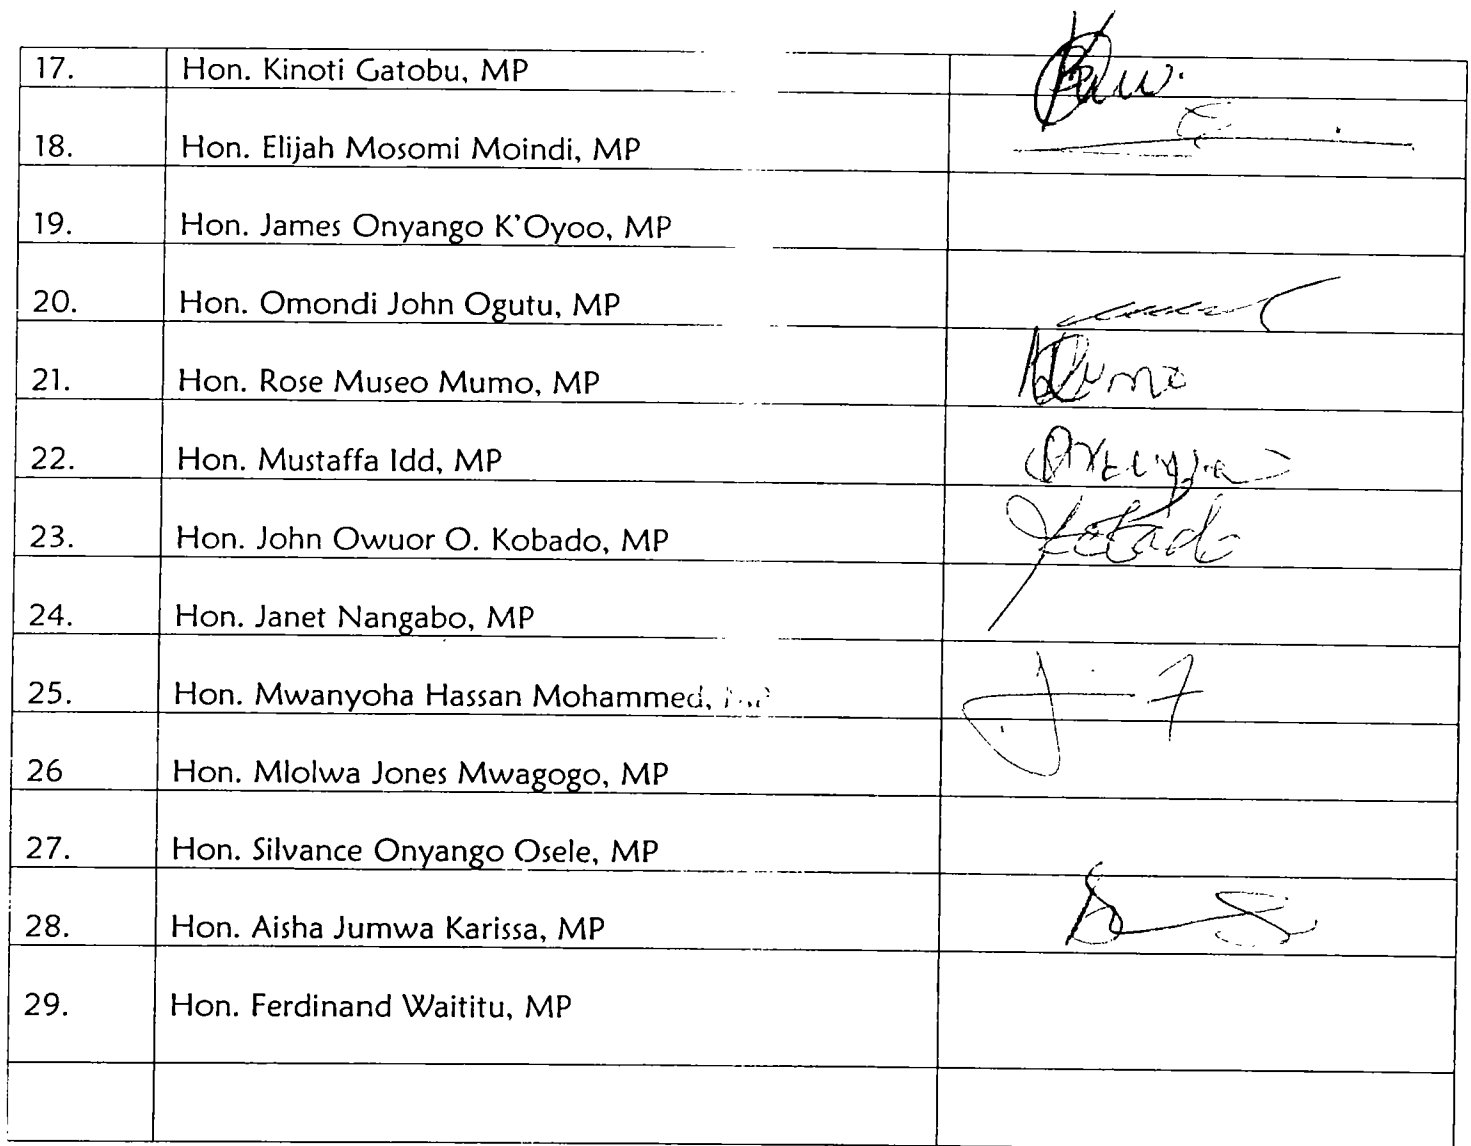 17. Hon. Kinoti Gatobu, MP
18. Hon. Elijah Mosomi Moindi, MP
19. Hon. James Onyango K'Oyoo, MP
20. Hon. Omondi John Ogutu, MP
21. Hon. Rose Museo Mumo, MP Mumo
22. Hon. Mustaffa Idd, MP
23. Hon. John Owuor O. Kobado, MP Kobado
24. Hon. Janet Nangabo, MP
25. Hon. Mwanyoha Hassan Mohammed, MP
26 Hon. Mlolwa Jones Mwagogo, MP
27. Hon. Silvance Onyango Osele, MP
28. Hon. Aisha Jumwa Karissa, MP
29. Hon. Ferdinand Waititu, MP